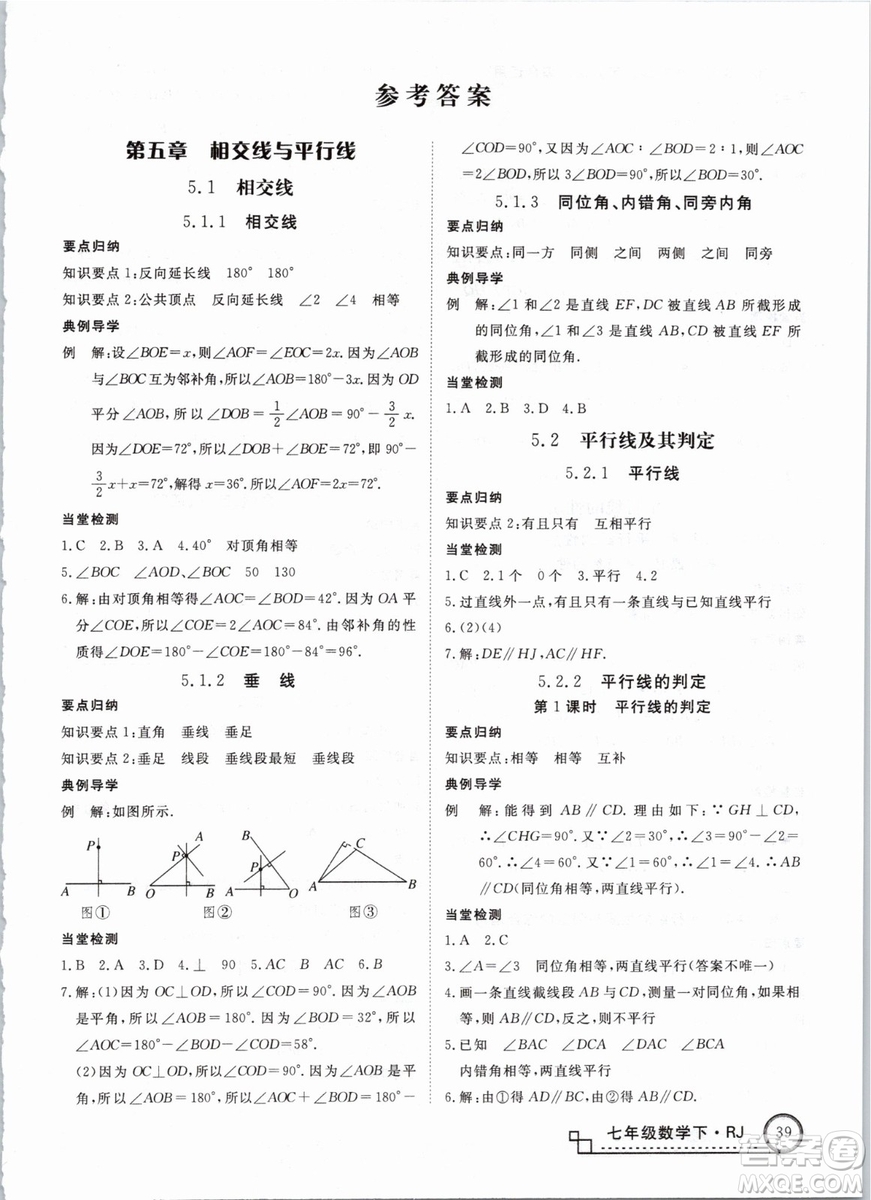 参考答案
第五章 相交线与平行线
5.1 相交线
5.1.1 相交线
要点归纳
知识要点1:反向延长线 180° 180°
知识要点2:公共顶点 反向延长线 ∠2 ∠4 相等
典例导学
例 解:设∠BOE=x,则∠AOF=∠EOC=2x.因为∠AOB
与∠BOC互为邻补角,所以∠AOB=180°-3x.因为OD
平分∠AOB,所以∠DOB=1/2∠AOB=90°-3/2x.
因为∠DOE=72°,所以∠DOB+∠BOE=72°,即90°-
3/2x+x=72°,解得x=36°.所以∠AOF=2x=72°.
当堂检测
1.C 2.B 3.A 4.40° 对顶角相等
5.∠BOC ∠AOD、∠BOC 50 130
6.解:由对顶角相等得∠AOC=∠BOD=42°.因为OA平
分∠COE,所以∠COE=2∠AOC=84°.由邻补角的性
质得∠DOE=180°-∠COE=180°-84°=96°.
5.1.2 垂 线
要点归纳
知识要点1:直角 垂线 垂足
知识要点2:垂足 线段 垂线段最短 垂线段
典例导学
例 解:如图所示.
P A B
图①
P A O B
图②
P B A O
C A B
图③
当堂检测
1.B 2.A 3.D 4.⊥ 90 5.AC AC 6.∠1+∠2=90°
7.解:(1)因为OC⊥OD,所以∠COD=90°.因为∠AOB
是平角,所以∠AOB=180°.因为∠BOD=32°,所以
∠AOC=180°-∠BOD-∠COD=58°.
(2)因为OC⊥OD,所以∠COD=90°.因为∠AOB
是平角,所以∠AOB=180°.所以∠AOC+∠BOD=180°-
∠COD=90°.又因为∠AOC∶∠BOD=2∶1,则∠AOC=
2∠BOD,所以3∠BOD=90°,所以∠BOD=30°.
5.1.3 同位角、内错角、同旁内角
要点归纳
知识要点:同一方 同侧 之间 两侧 之间 同旁
典例导学
例 解:∠1和∠2是直线EF,DC被直线AB所截形成
的同位角,∠1和∠3是直线AB,CD被直线EF所
截形成的同位角.
当堂检测
1.A 2.B 3.D 4.B
5.2 平行线及其判定
5.2.1 平行线
要点归纳
知识要点2:有且只有 互相平行
当堂检测
1.C 2.1个 0个 3.平行 4.2
5.过直线外一点,有且只有一条直线与这条直线平行
6.(2)(4)
7.解:DE∥HJ,AC∥FH.
5.2.2 平行线的判定
第1课时 平行线的判定
要点归纳
知识要点:相等 相等 互补
典例导学
例 解:能得到AB∥CD.理由如下:∵GH⊥CD,
∴∠CHG=90°.又∵∠2=30°,∴∠3=90°-∠2=
60°.∴∠4=60°.又∵∠1=60°,∴∠1=∠4.∴AB
∥CD(同位角相等,两直线平行).
当堂检测
1.A 2.C
3.∠A=∠3 同位角相等,两直线平行(答案不唯一)
4.画一条直线截线段AB,CD,测量一对同位角,如果相
等,则AB∥CD,反之,则不平行
5.已知 ∠BAC ∠DCA ∠DAC ∠BCA
内错角相等,两直线平行
6.解:由①得AD∥BC,由②得AB∥CD.
七年级数学下·RJ 39
答案圈
MXQE.COM